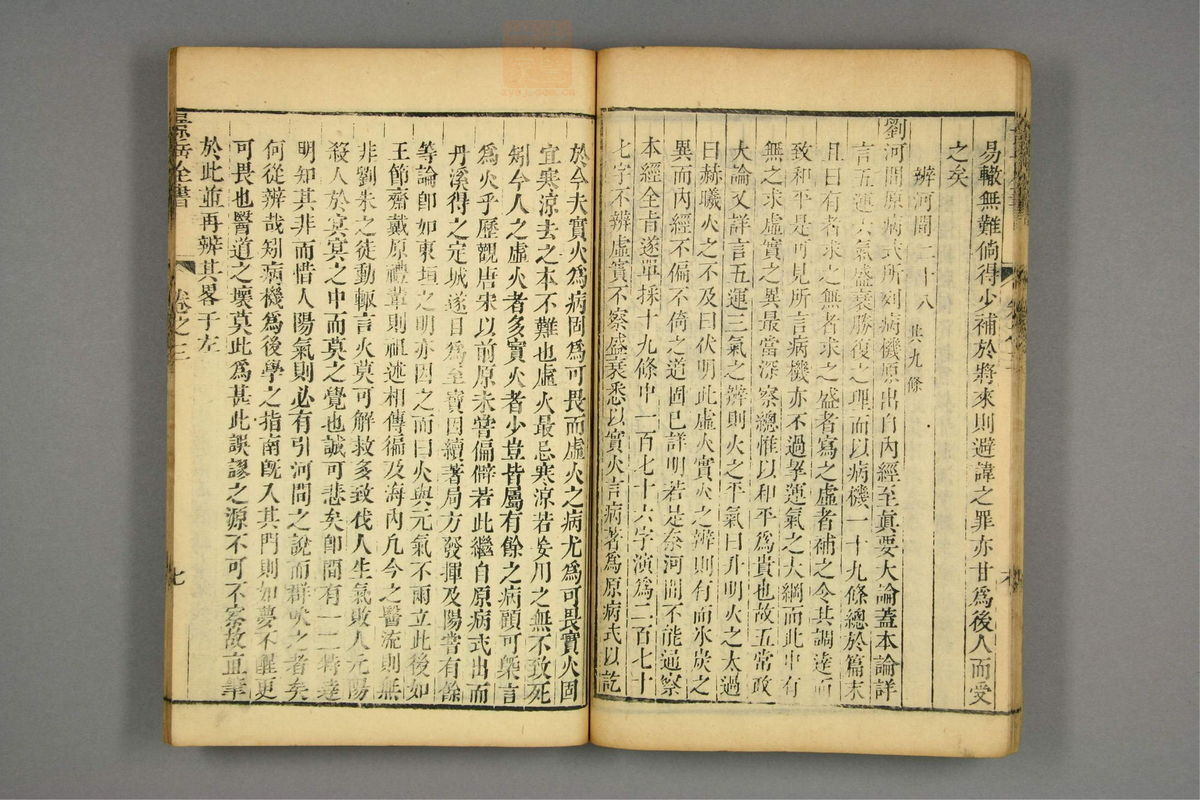 易轍無難倘得少補於將來則避諱之罪亦甘爲後人而受
之矣
辨河間二十八 共九條
劉河間原病式所列病機原出自內經至眞要大論蓋本論詳
言五運六氣盛衰勝復之理而以病機一十九條總於篇末
且曰有者求之無者求之盛者寫之虛者補之令其調達而
致和平是可見所言病機亦不過挈運氣之大綱而此中有
無之求虛實之異最當深察總惟以和平爲貴也故五常政
大論又詳言五運三氣之辨則火之平氣曰升明火之太過
曰赫曦火之不及曰伏明此虛火實火之辨則有而氷炭之
異而內經不偏不倚之道固已詳明若是奈河間不能通察
本經全旨遂單採十九條中一百七十六字演爲二百七十
七字不辨虛實不察盛衰悉以實火言病著爲原病式以訖
於今夫實火爲病固爲可畏而虛火之病尤爲可畏實火固
宜寒涼去之本不難也虛火最忌寒涼若妄川之無不致死
矧今人之虛火者多實火者少豈皆屬有餘之病顧可槩言
爲火乎歷觀唐宋以前原未嘗偏僻若此繼自原病式出而
丹溪得之定城遂目爲至寶因續著局方發揮及陽嘗有餘
等論卽如東垣之明亦因之而曰火與元氣不兩立此後如
王節齋戴原禮輩則祖述相傳徧及海內凡今之醫流則無
非劉朱之徒動輒言火莫可解救多致伐人生氣敗人元陽
殺人於冥冥之中而莫之覺也誠可悲矣卽間有一二特達
明知其非而惜人陽氣則必有引河間之說而群吠之者矣
何從辨哉矧病機爲後學之指南旣入其門則如夢不醒更
可畏也醫道之壞莫此爲甚此誤謬之源不可不察故直筆
於此並再辨其畧于左
景岳全書 卷之三 七